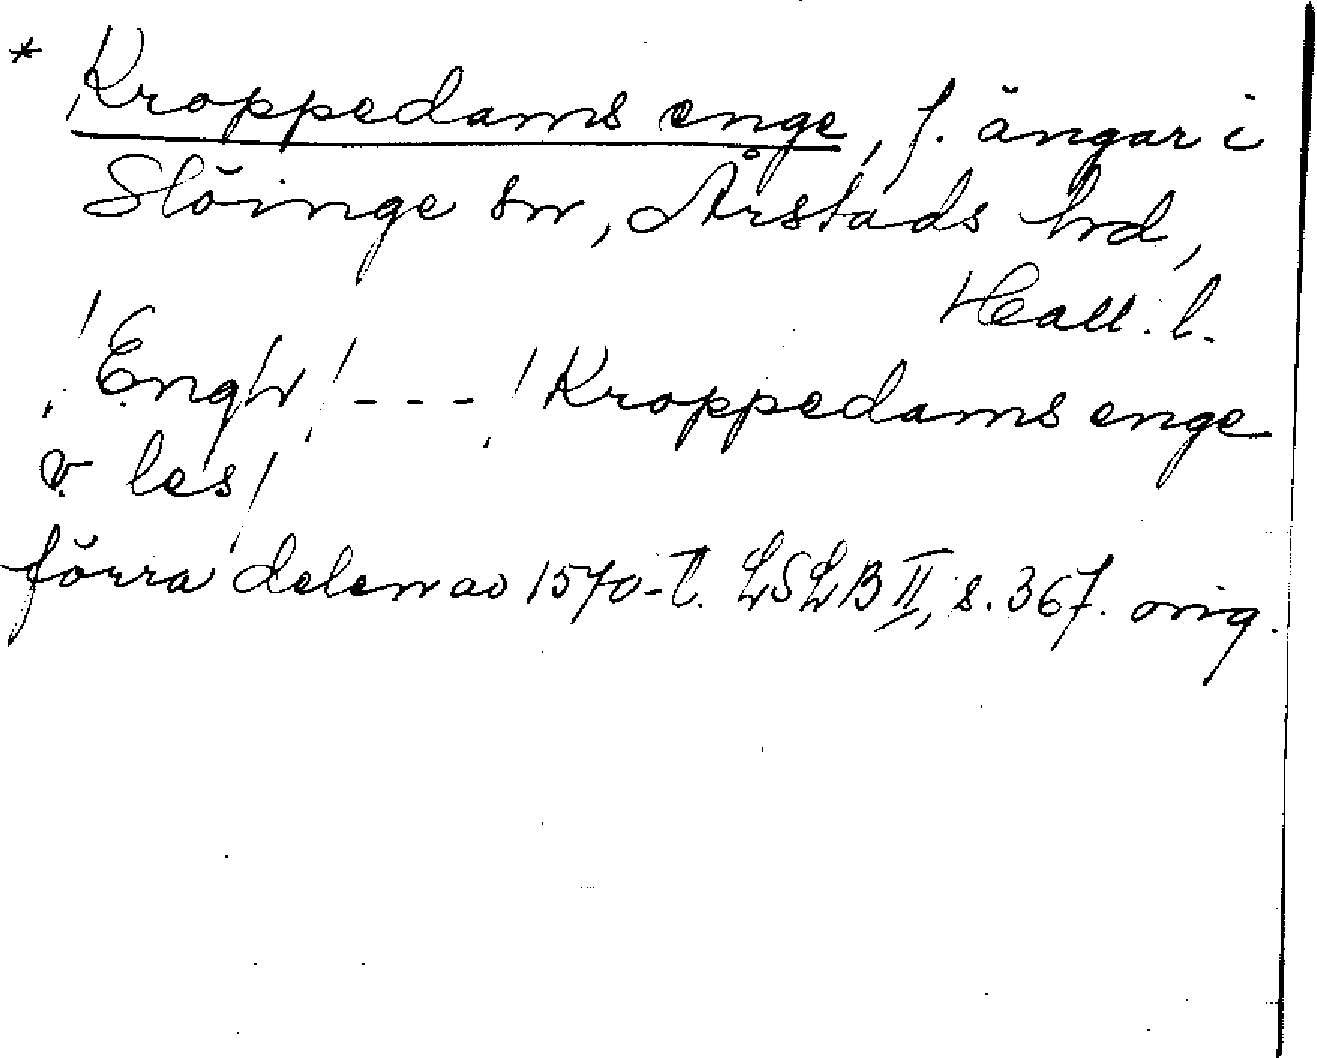 * Kroppedams enge, f. ängar i
Slöinge sn, Årstads hrd,
Hall. l.
/Engh/ --- /Kroppedams enge
v. les/
förra delen av 1570-t. LSLB II, s. 367. orig.